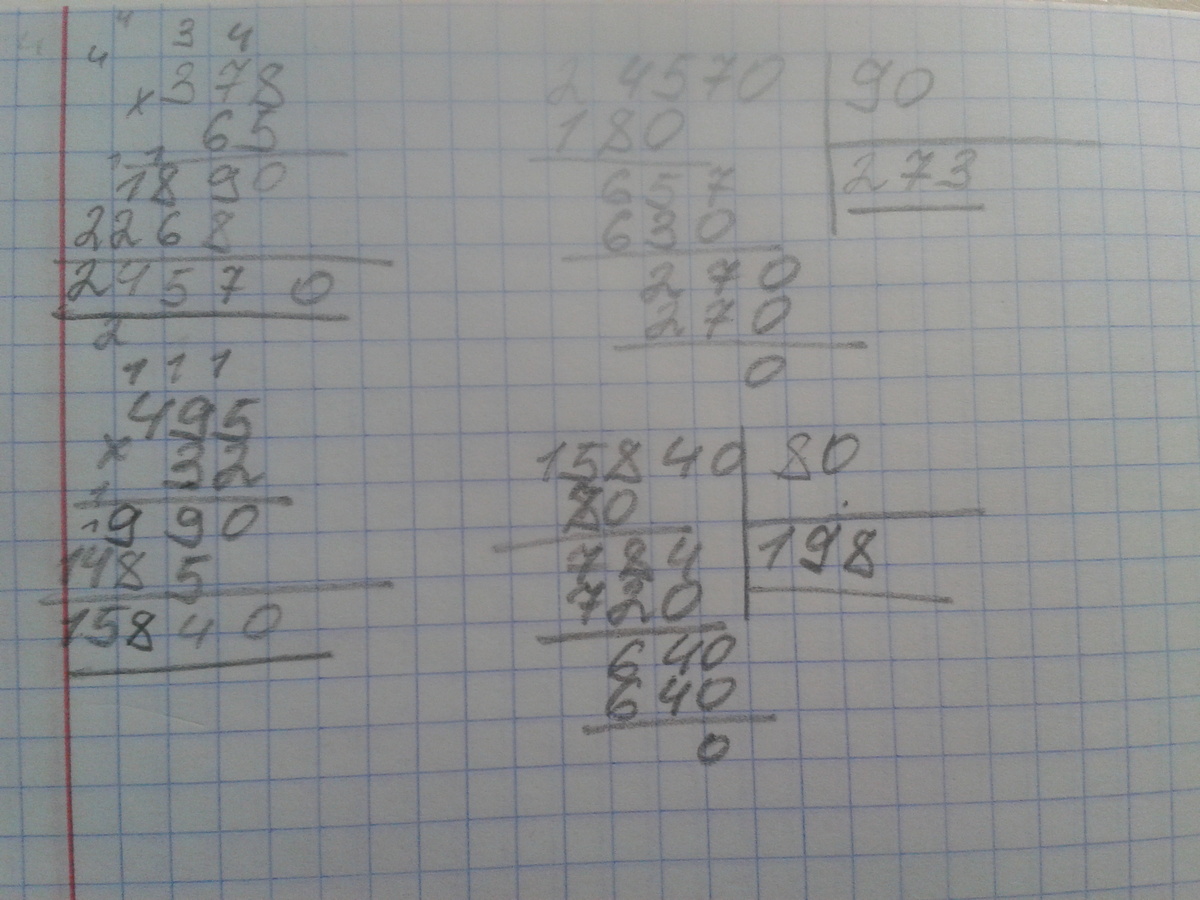 4 4 3 4
× 378
65
1 1
1890
2268
24570
2
1 1 1
× 495
32
1
1
990
1485
15840
24570 | 90
180
273
657
630
270
270
0
15840 | 80
80
198
784
720
640
640
0